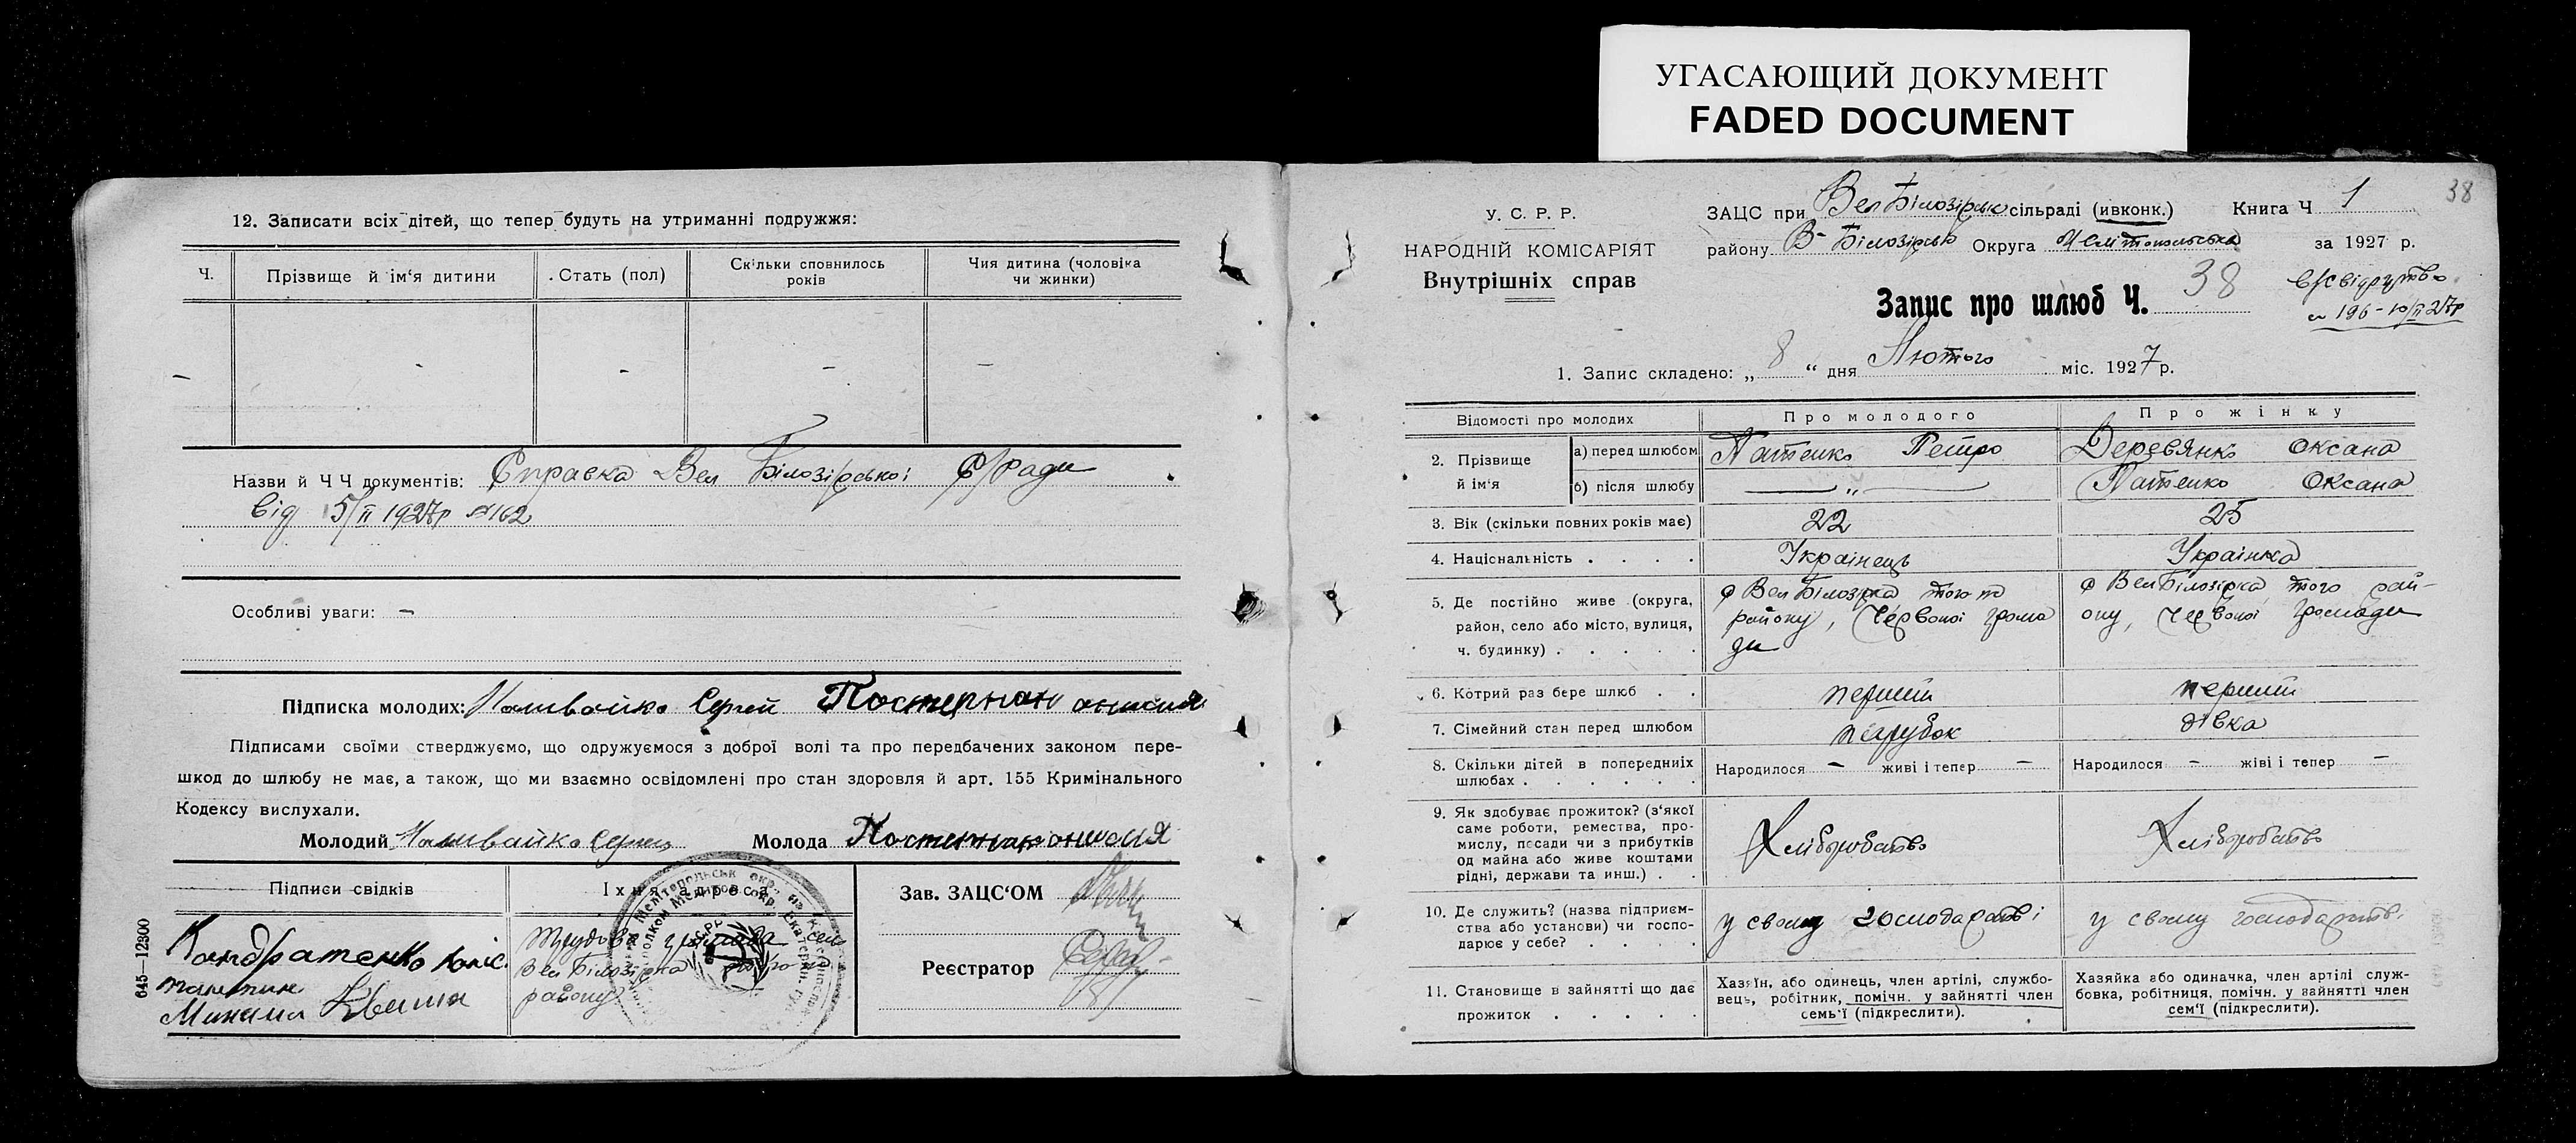 УГАСАЮЩИЙ ДОКУМЕНТ
FADED DOCUMENT
12. Записати всіх дітей, що тепер будуть на утриманні подружжя:
Ч.
Прізвище й ім'я дитини
Стать (пол)
Скільки сповнилось
років
Чия дитина (чоловіка
чи жинки)
- - - - -
Назви й Ч Ч документів: Справка Вел Білозірської С/Ради
від 5/II 1927р № 162
Особливі уваги: —
Підписка молодих: Наливайко Сергей Постернак
Підписами своїми стверджуємо, що одружуємося з доброї волі та про передбачених законом пере-
шкод до шлюбу не має, а також, що ми взаємно освідомлені про стан здоровля й арт. 155 Кримінального
Кодексу вислухали.
Молодий Наливайко Сергей Молода Постернак
Підписи свідків
Їхня адреса
Зав. ЗАЦС'ОМ
Кондратенко
Микита Квита
Трудова громада села
Вел Білозірка того ж
району
Реєстратор
645—12300
38
У. С. Р. Р.
НАРОДНІЙ КОМІСАРІЯТ
Внутрішніх справ
ЗАЦС при Вел Білозірськ сільраді (ивконк.) Книга Ч 1
району В-Білозірсько Округа Мелітопольська за 1927 р.
Запис про шлюб Ч. 38
№ 196 - 10/II 27р
1. Запис складено: „ 8 “ дня Лютого міс. 1927 р.
Відомості про молодих
Про молодого
Про жінку
2. Прізвище
й ім'я
а) перед шлюбом
Патенко Петро
Деревянко Оксана
б) після шлюбу
— „ —
Патенко Оксана
3. Вік (скільки повних років має)
22
25
4. Національність . . . .
Українець
Українка
5. Де постійно живе (округа,
район, село або місто, вулиця,
ч. будинку) . . . . .
с Вел Білозірка того ж
району, Червоної грома
ди
с Вел Білозірка того рай-
ону, Червоної громади
6. Котрий раз бере шлюб . .
перший
перший
7. Сімейний стан перед шлюбом
парубок
дівка
8. Скільки дітей в попередніх
шлюбах . . . . . .
Народилося — живі і тепер —
Народилося — жіві і тепер —
9. Як здобуває прожиток? (з'якої
саме роботи, ремества, про-
мислу, посади чи з прибутків
од майна або живе коштами
рідні, держави та инш.) . .
Хліборобство
Хліборобство
10. Де служить? (назва підприєм-
ства або установи) чи госпо-
дарює у себе? . . . .
у своему господарстві
у своему господарстві
11. Становище в зайнятті що дає
прожиток . . . . .
Хазяїн, або одинець, член артілі, службо-
вець, робітник, помічн. у зайнятті член
семь'ї (підкреслити).
Хазяйка або одиначка, член артілі служ-
бовка, робітниця, помічн. у зайнятті член
сем'ї (підкреслити).